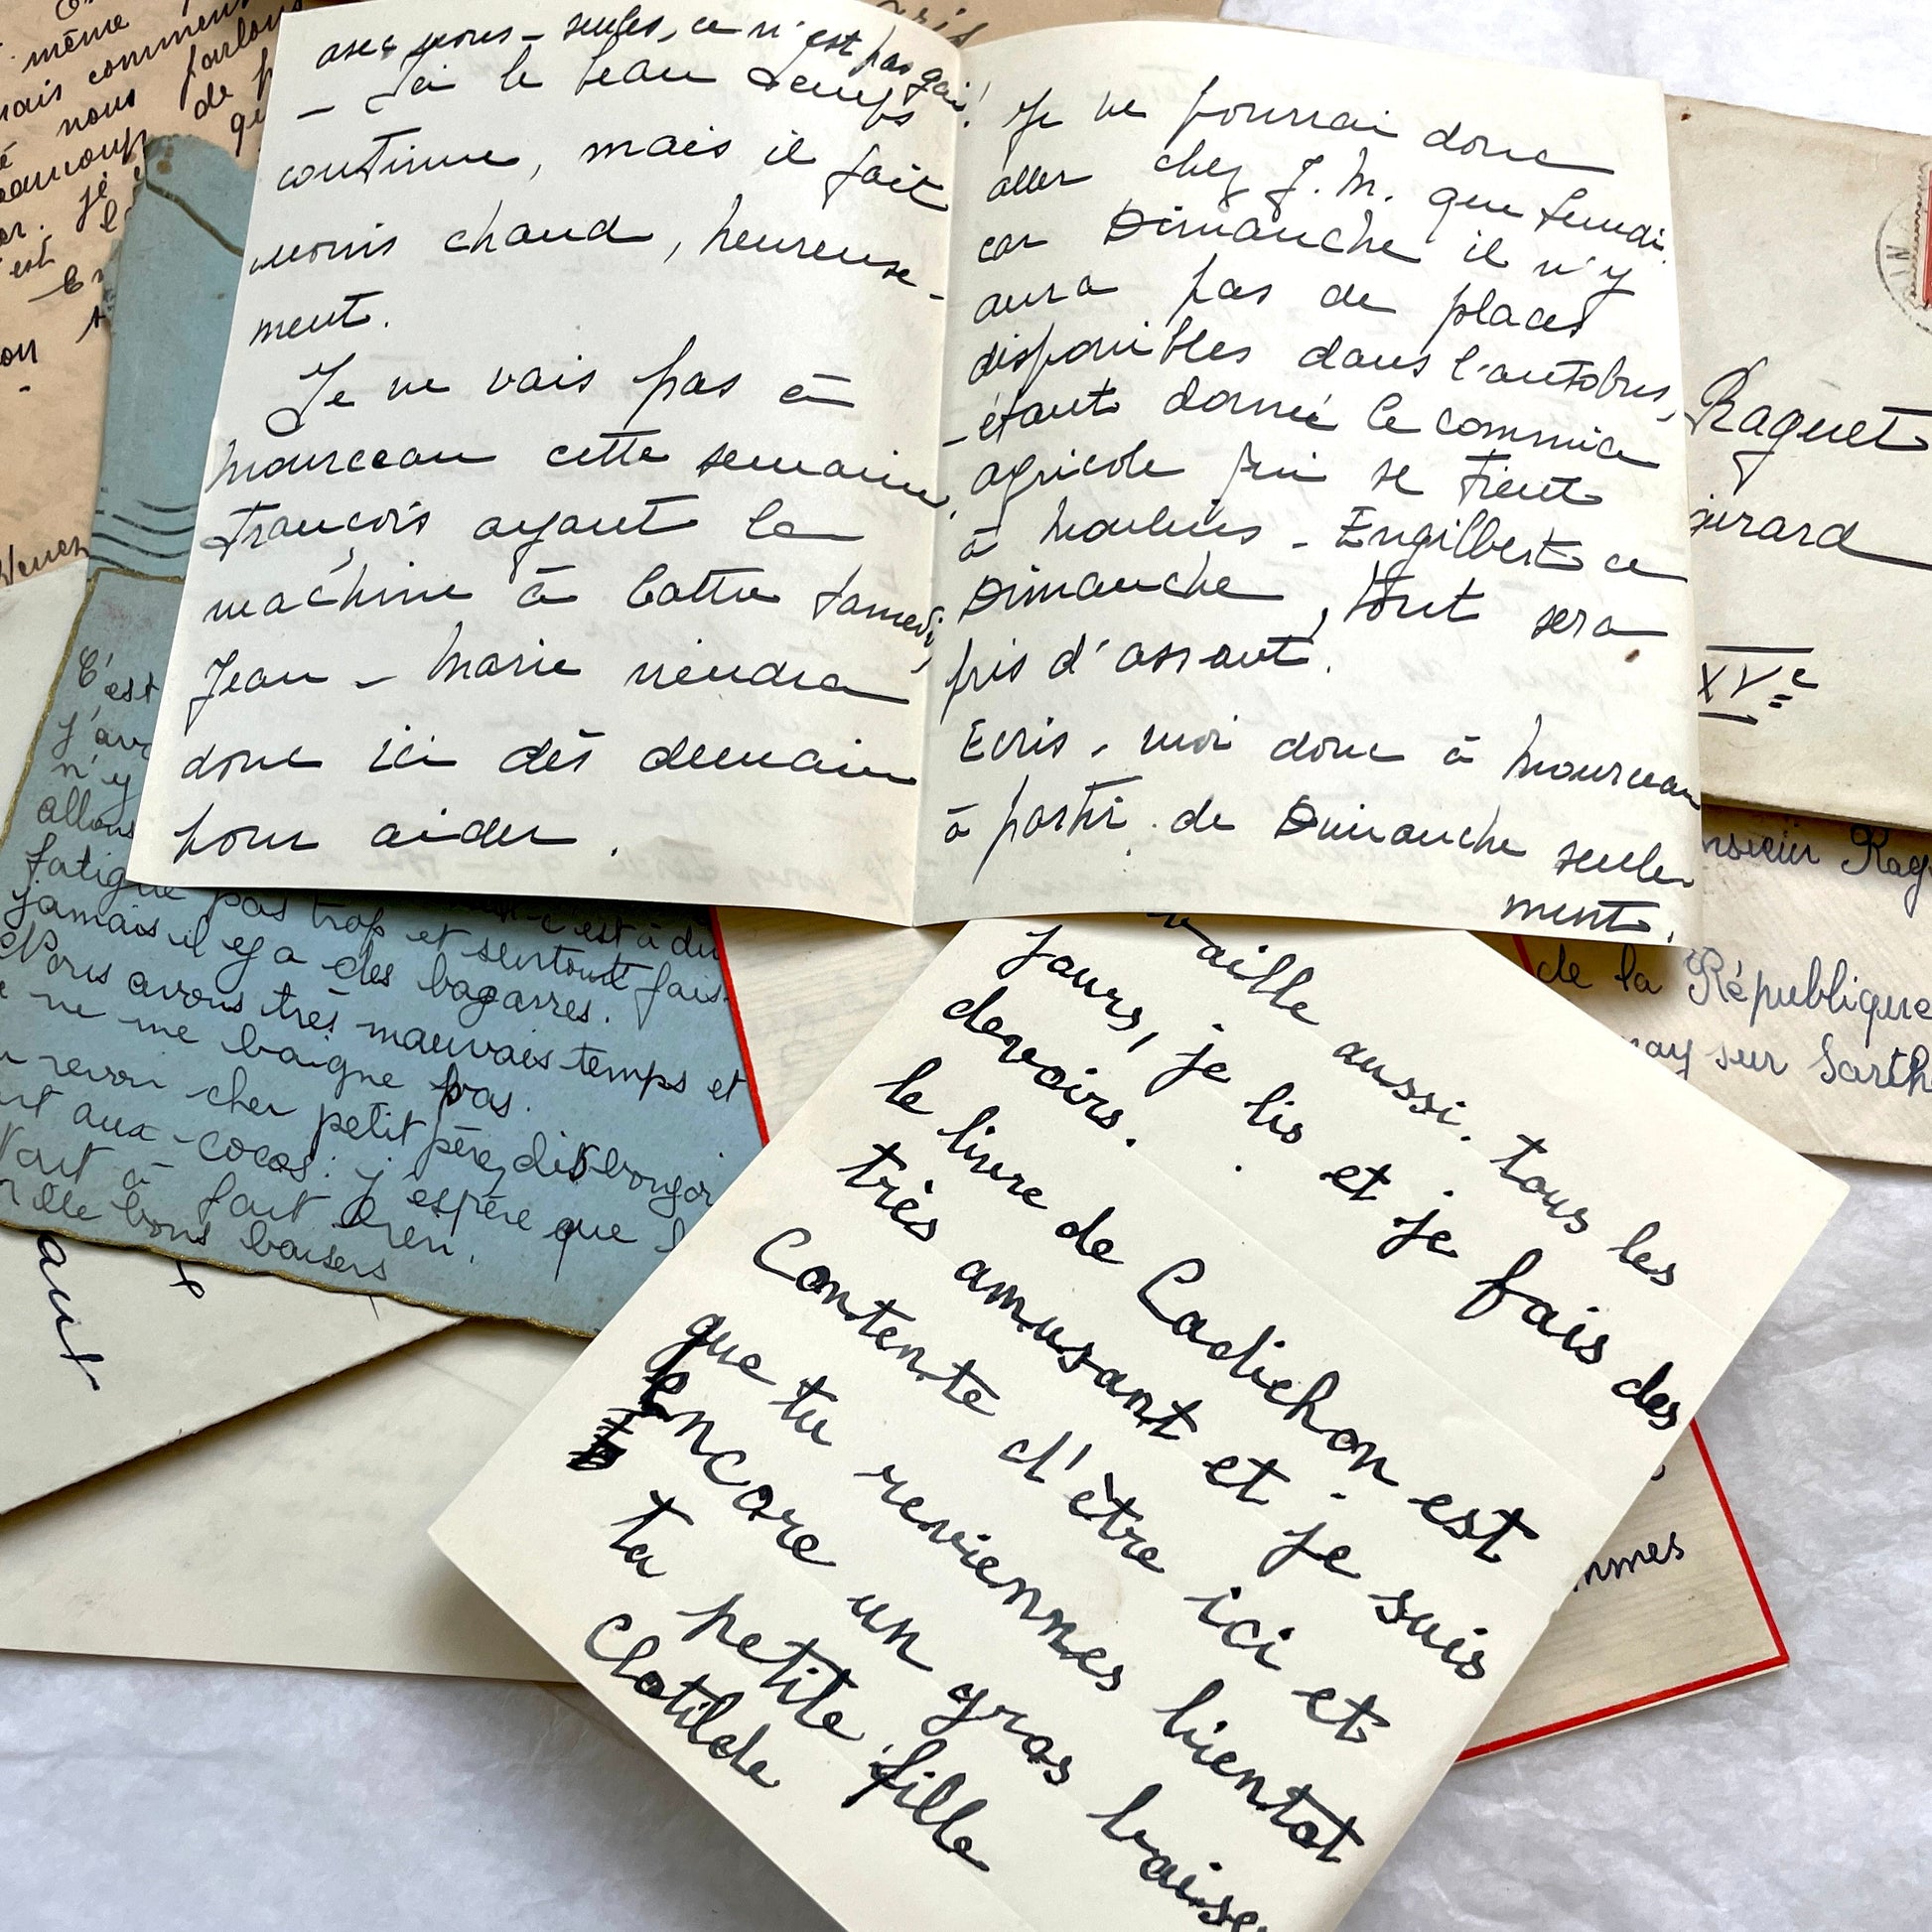 même
mais comment
nous parlons
beaucoup de
qu
je
est
on
seules, ce n'est pas gai!
- Ici le beau temps
continue, mais il fait
moins chaud, heureuse-
ment.
Je ne vais pas à
Mourceau cette semaine,
François ayant la
machine à battre samedi,
Jean-Marie viendra
donc ici dès demain
pour aider.
Je ne pourrai donc
aller chez J. M. que lundi
car Dimanche il n'y
aura pas de places
disponibles dans l'autobus,
-étant donné le comice
agricole qui se tient
à Moulins-Engilbert ce
Dimanche, tout sera
pris d'assaut.
Ecris-moi donc à Mourceau
à partir de Dimanche seule-
ment.
Raquet
XVe
Monsieur Rag
de la République
sur Sarth
C'est
j'av
n'y
allons
fatigue pas trop et surtout fais
c'est à di
jamais il y a des bagarres.
Nous avons très mauvais temps et
ne me baigne pas.
revoir cher petit père, dis bonjour
aux cocos. j'espère que
tout à fait bien.
mille bons baisers
aux
vaille aussi. tous les
jours, je lis et je fais des
devoirs.
le livre de Cadichon est
très amusant et je suis
Contente d'être ici et
que tu reviennes bientot
Encore un gros baise
ta petite fille
Clotilde
mmes